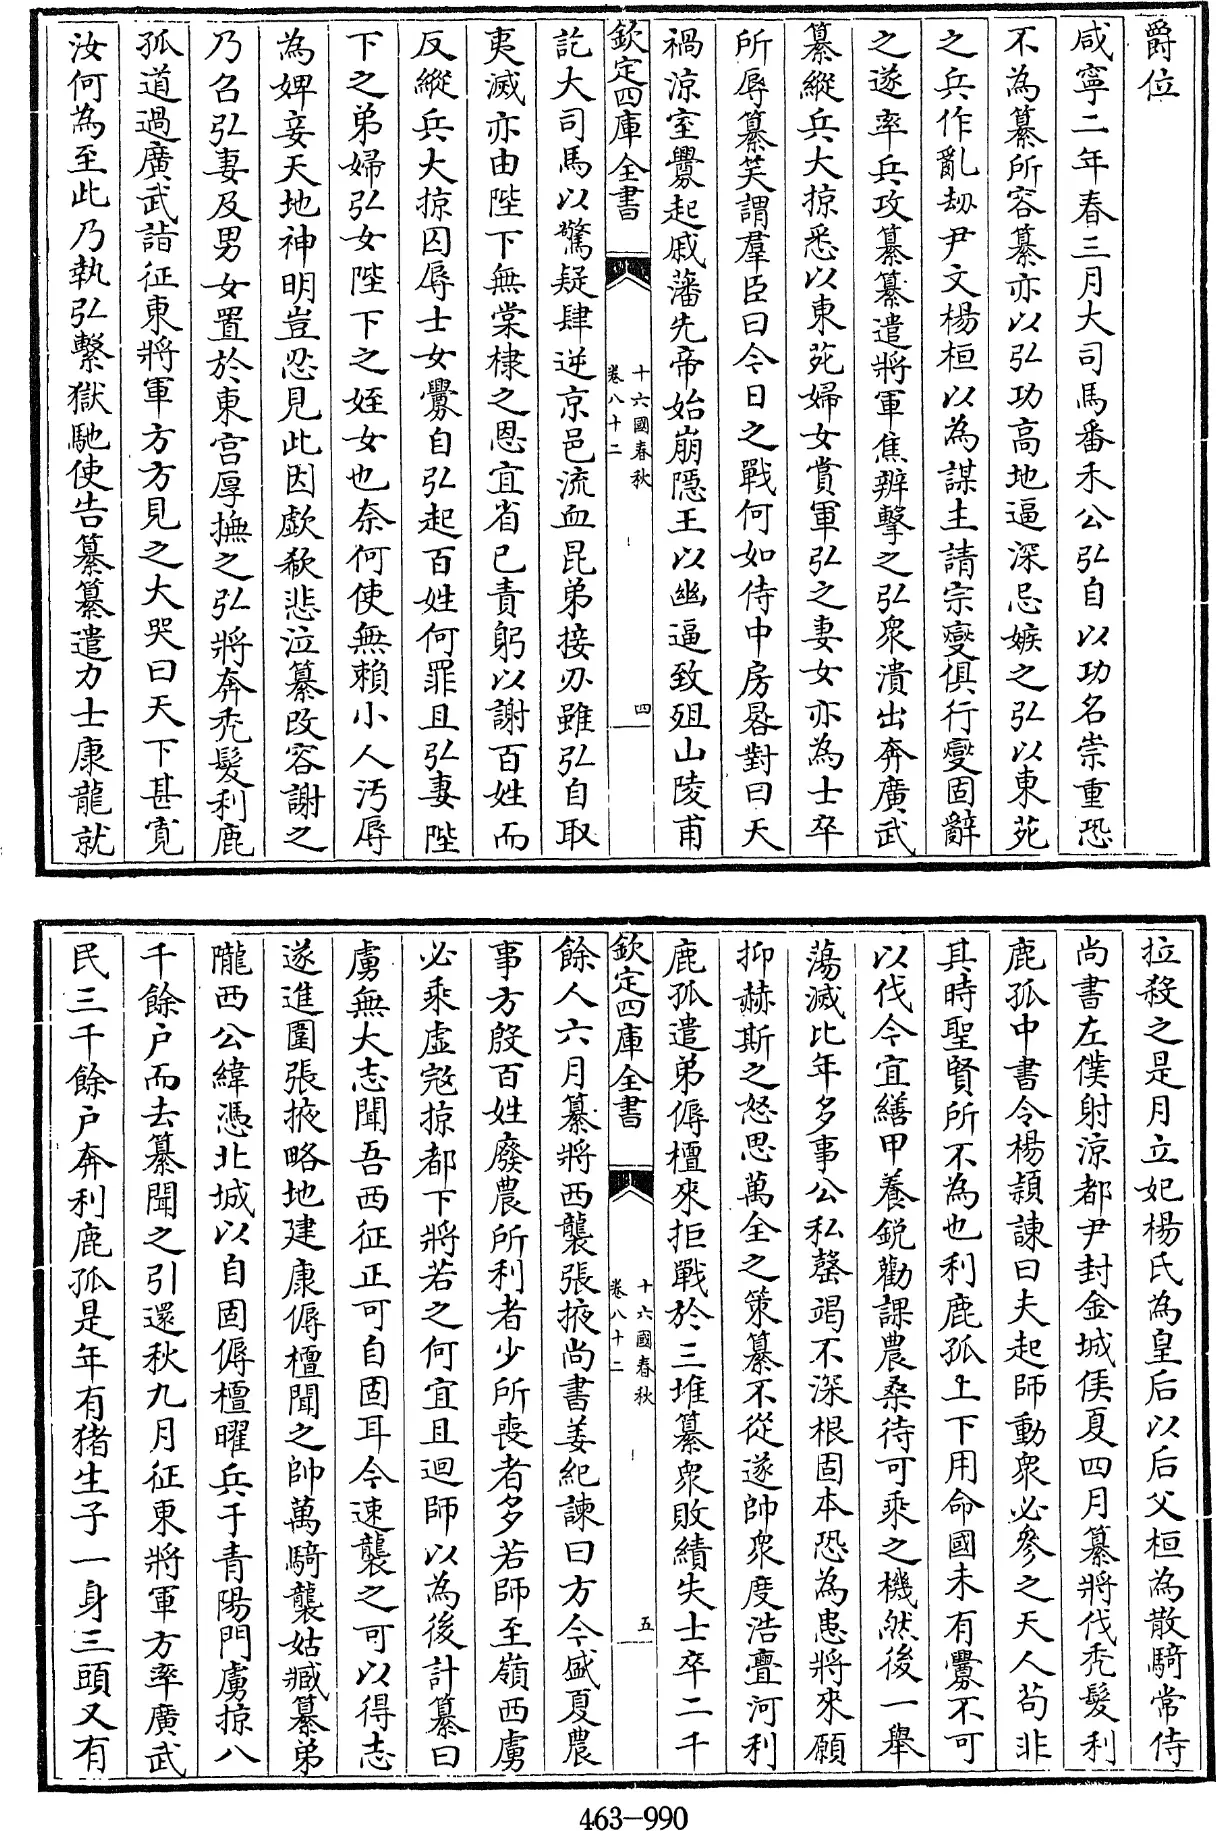 爵位
咸寧二年春三月大司馬番禾公弘自以功名崇重恐
不為纂所容纂亦以弘功高地逼深忌嫉之弘以東苑
之兵作亂劫尹文楊桓以為謀主請宗燮俱行燮固辭
之遂率兵攻纂纂遣將軍焦辨擊之弘衆潰出奔廣武
纂縱兵大掠悉以東苑婦女賞軍弘之妻女亦為士卒
所辱纂笑謂羣臣曰今日之戰何如侍中房晷對曰天
禍涼室釁起戚藩先帝始崩隱王以幽逼致殂山陵甫
欽定四庫全書
十六國春秋
卷八十二
四
訖大司馬以驚疑肆逆京邑流血昆弟接刃雖弘自取
夷滅亦由陛下無棠棣之恩宜省己責躬以謝百姓而
反縱兵大掠囚辱士女釁自弘起百姓何罪且弘妻陛
下之弟婦弘女陛下之姪女也奈何使無賴小人污辱
為婢妾天地神明豈忍見此因歔欷悲泣纂改容謝之
乃召弘妻及男女置於東宫厚撫之弘將奔禿髮利鹿
孤道過廣武詣征東將軍方方見之大哭曰天下甚寛
汝何為至此乃執弘繫獄馳使告纂纂遣力士康龍就
拉殺之是月立妃楊氏為皇后以后父桓為散騎常侍
尚書左僕射涼都尹封金城侯夏四月纂將伐禿髮利
鹿孤中書令楊頴諫曰夫起師動衆必參之天人苟非
其時聖賢所不為也利鹿孤上下用命國未有釁不可
以伐今宜繕甲養銳勸課農桑待可乘之機然後一舉
蕩滅比年多事公私罄竭不深根固本恐為患將來願
抑赫斯之怒思萬全之策纂不從遂帥衆度浩亹河利
鹿孤遣弟傉檀來拒戰於三堆纂衆敗績失士卒二千
欽定四庫全書
十六國春秋
卷八十二
五
餘人六月纂將西襲張掖尚書姜紀諫曰方今盛夏農
事方殷百姓廢農所利者少所喪者多若師至嶺西虜
必乘虛宼掠都下將若之何宜且迴師以為後計纂曰
虜無大志聞吾西征正可自固耳今速襲之可以得志
遂進圍張掖略地建康傉檀聞之帥萬騎襲姑臧纂弟
隴西公緯憑北城以自固傉檀曜兵于青陽門虜掠八
千餘户而去纂聞之引還秋九月征東將軍方率廣武
民三千餘户奔利鹿孤是年有猪生子一身三頭又有
463-990